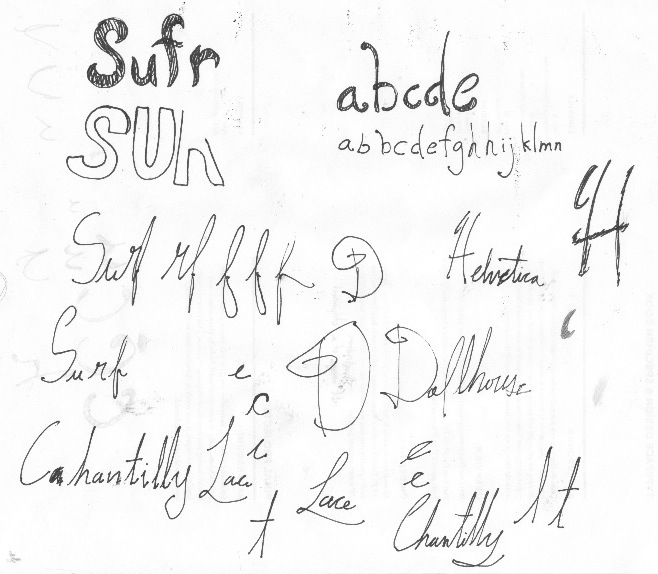 Sufr
abcde
SUh
abbcdefghhijklmn
Surf rf f f f D Helvetica H
Surf e D Dollhouse
c
Cahantilly Lace i Lace e e Chantilly l t
t